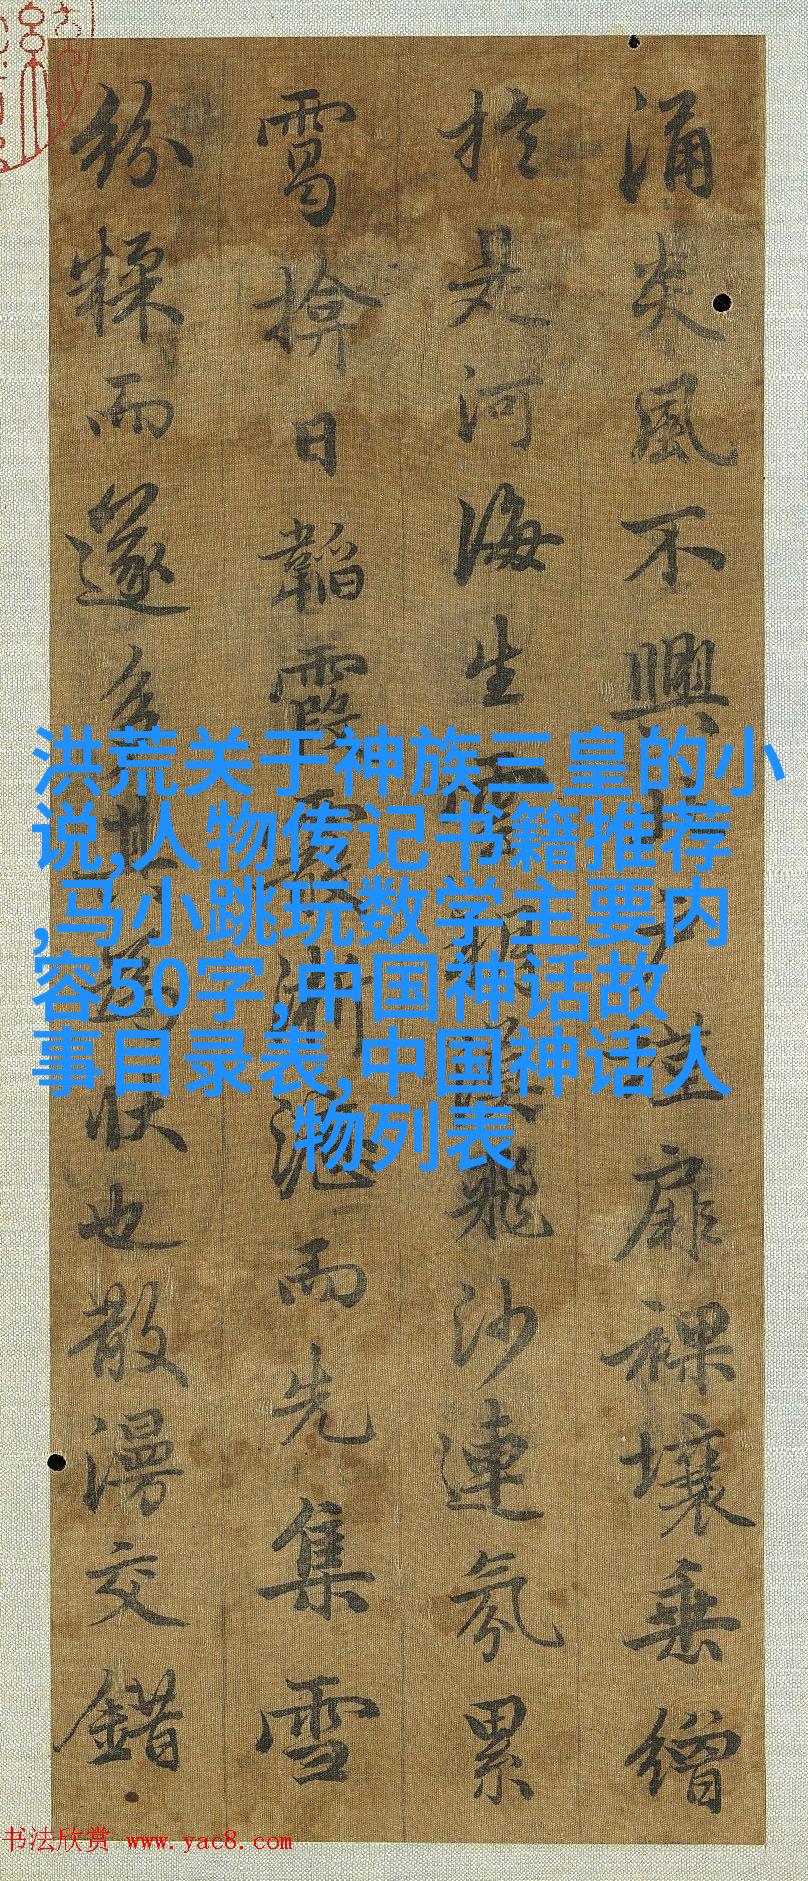 涌炎風不興戶墐扉裸壤垂繒
於是河海生雲朔漠飛沙連氛累
霭揜日韜霞霰淅瀝而先集雪
紛糅而遂多其為狀也散漫交錯
洪荒关于神族三皇的小
说,人物传记书籍推荐
,马小跳玩数学主要内
容50字,中国神话故
事目录表,中国神话人
物列表
书法欣赏 www.yac8.com